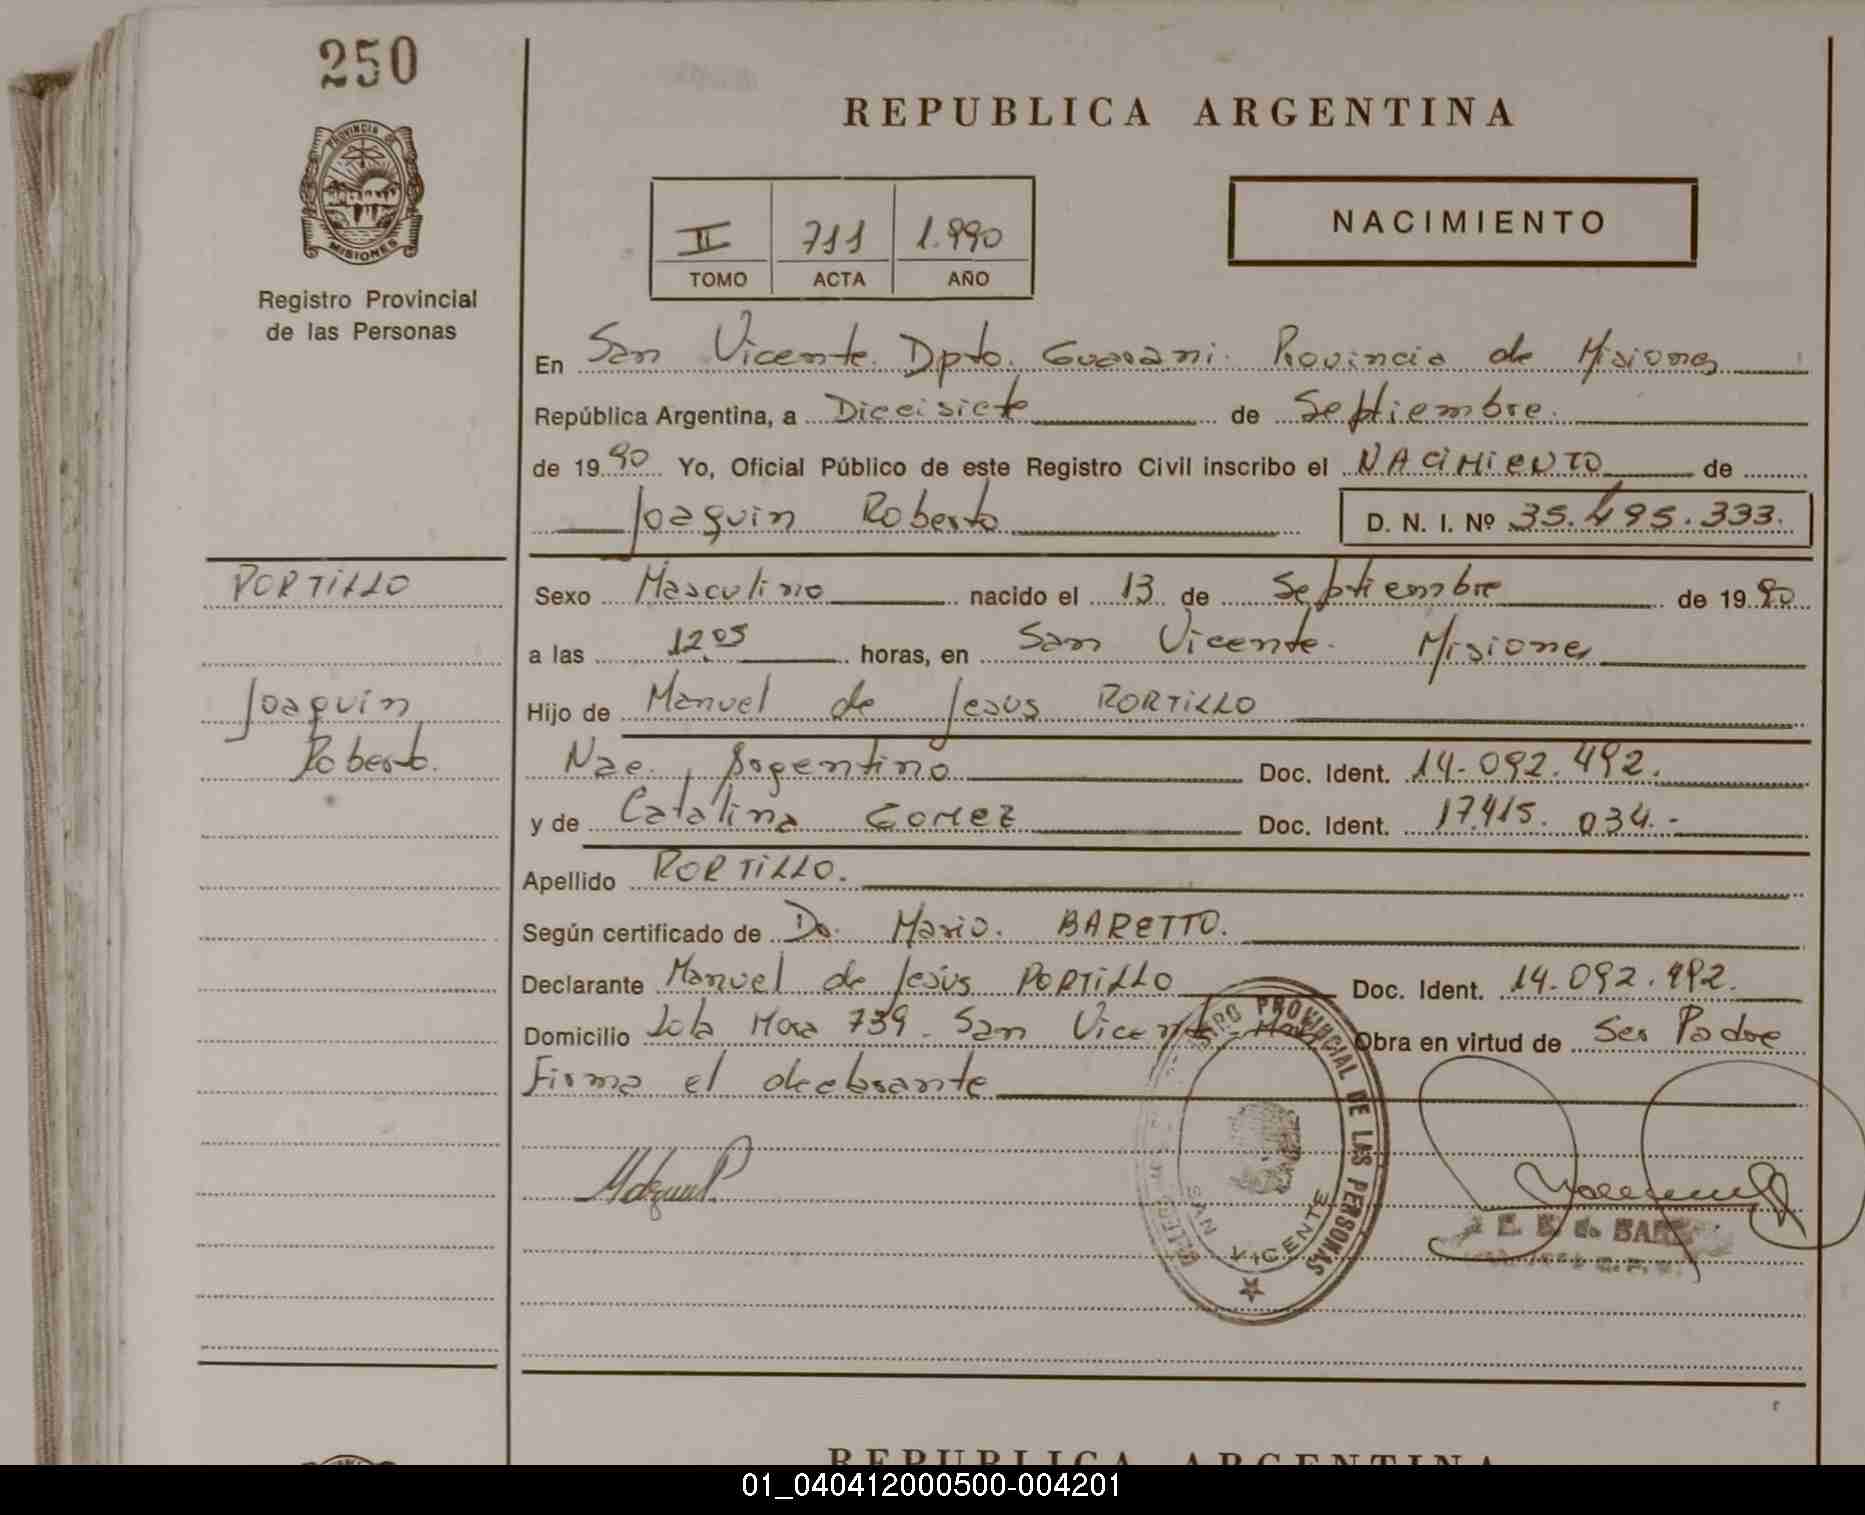 250
REPUBLICA ARGENTINA
PROVINCIA DE MISIONES
Registro Provincial
de las Personas
II 711 1.990
TOMO ACTA AÑO
NACIMIENTO
En San Vicente. Dpto. Guarani. Provincia de Misiones
República Argentina, a Dieeisiete de Septiembre.
de 1990 Yo, Oficial Público de este Registro Civil inscribo el NACIMIENTO de
Joaquin Roberto D. N. I. Nº 35.495.333.
PORTILLO
Joaquín
Roberto.
Sexo Masculino nacido el 13 de Septiembre de 1990
a las 12.05 horas, en San Vicente. Misiones
Hijo de Manuel de Jesus PORTILLO
Nac. Argentino Doc. Ident. 14.092.492.
y de Catalina GOMEZ Doc. Ident. 17.415.034.-
Apellido PORTILLO.
Según certificado de Dr. Mario. BARETTO.
Declarante Manuel de Jesús PORTILLO Doc. Ident. 14.092.492.
Domicilio Lola Mora 739. San Vicente Obra en virtud de Ser Padre
Firma el declarante
PROVINCIAL DE LAS PERSONAS
SAN VICENTE
REPUBLICA ARGENTINA
01_040412000500-004201